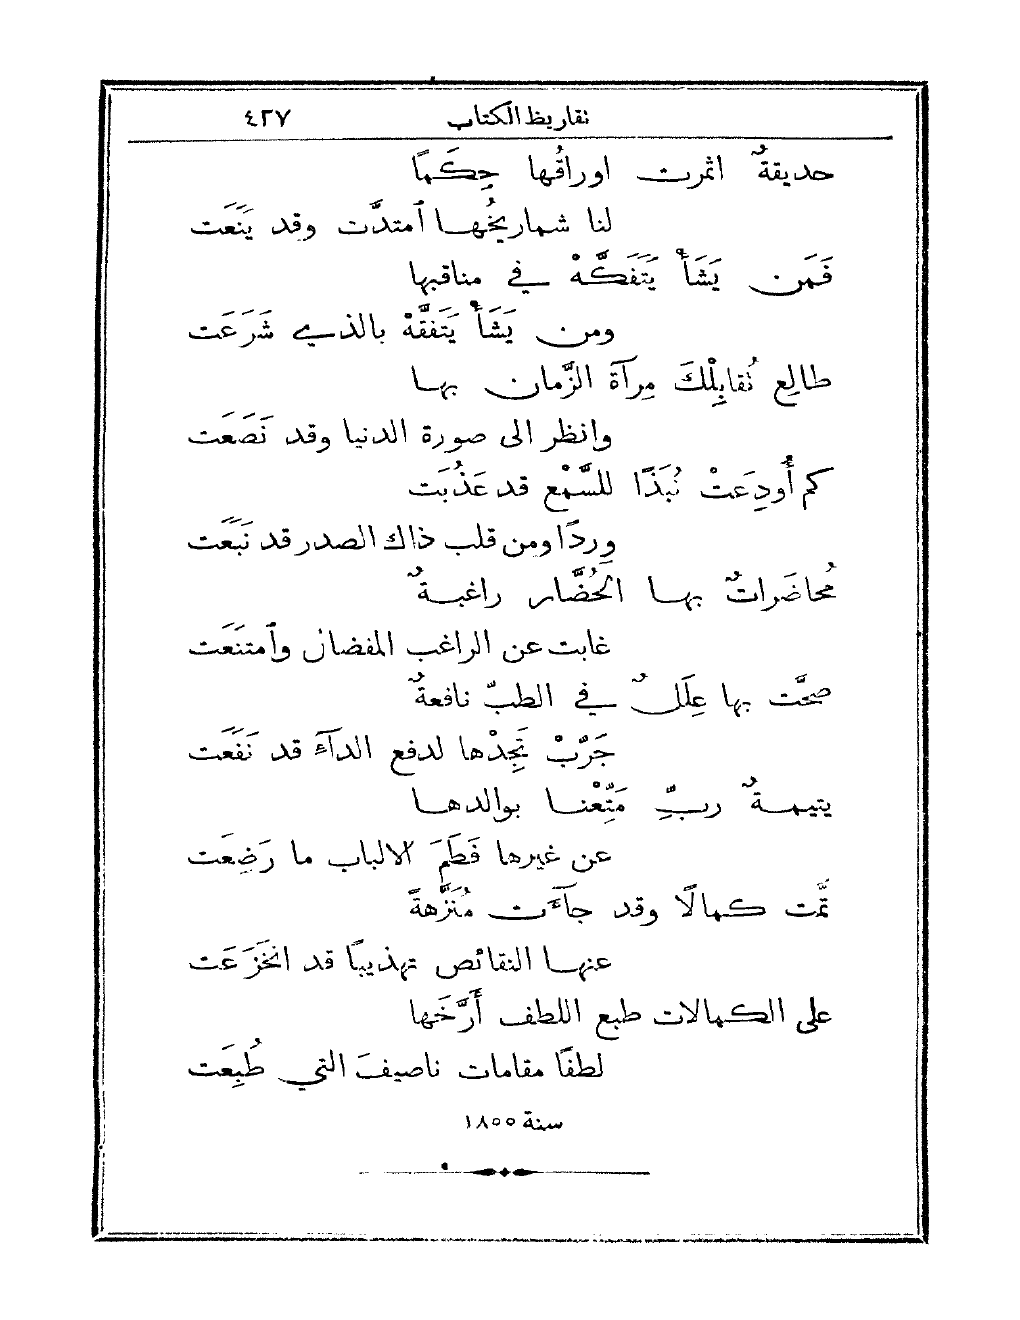 تقاريظ الكتاب ٤٢٧
حديقةٌ اثمرت اوراقُها حِكَمًا
لنا شماريخُها ٱمتدَّت وقد يَنَعَت
فَمَن يَشَأْ يَتَفَكَّهْ في مناقبها
ومن يَشَأْ يَتَفَقَّهْ بالذي شَرَعَت
طالِع تُقابِلْكَ مِرآة الزَّمان بها
وانظر الى صورة الدنيا وقد نَصَعَت
كم أُودِعَتْ نُبَذًا للسَّمْع قد عَذُبَت
وردًا ومن قلب ذاك الصدر قد نَبَعَت
مُحاضَراتٌ بها الحُضَّار راغبةٌ
غابت عن الراغب المفضال وٱمتَنَعَت
صحَّت بها عِلَلٌ في الطبّ نافعةٌ
جَرِّبْ تَجِدْها لدفع الدآءِ قد نَفَعَت
يتيمةٌ ربِّ مَتِّعْنا بوالدها
عن غيرها فَطَمَ الالباب ما رَضِعَت
تمَّت كمالًا وقد جآءَت مُنَزَّهةً
عنها النقائص تهذيبًا قد انخَزَعَت
على الكمالات طبع اللطف أَرَّخَها
لطفًا مقامات ناصيفَ التي طُبِعَت
سنة ١٨٥٥